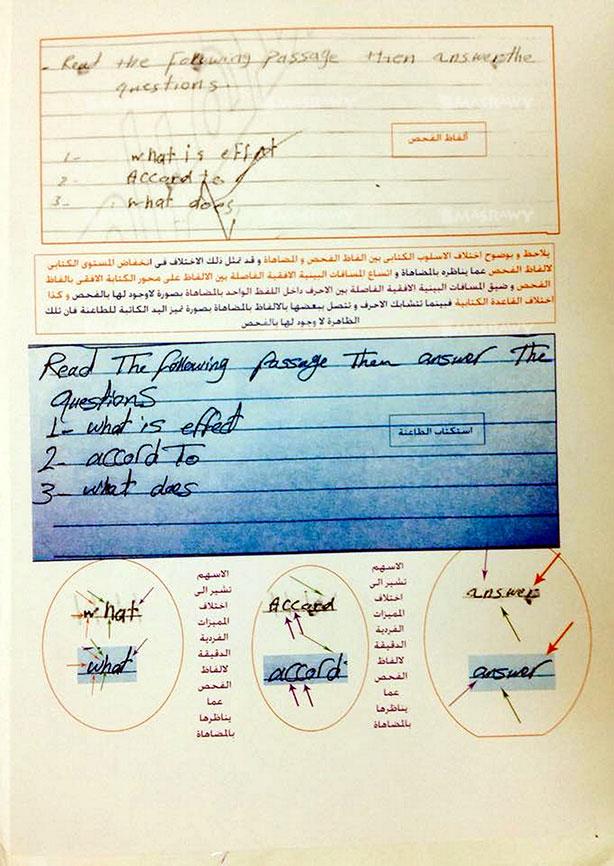 - Read the following Passage then answer the
questions.
MASRAWY
ألفاظ الفحص
1- what is effect
2- Accord to
3- what does
MASRAWY
يلاحظ و بوضوح اختلاف الاسلوب الكتابى بين الفاظ الفحص و المضاهاة و قد تمثل ذلك الاختلاف فى انخفاض المستوى الكتابى
لالفاظ الفحص عما يناظره بالمضاهاة و اتساع المسافات البينية الافقية الفاصلة بين الالفاظ على محور الكتابة الافقى بالفاظ
الفحص و ضيق المسافات البينية الافقية الفاصلة بين الاحرف داخل اللفظ الواحد بالمضاهاة بصورة لاوجود لها بالفحص و كذا
اختلاف القاعدة الكتابية فبينما تتشابك الاحرف و تتصل ببعضها بالالفاظ بالمضاهاة بصورة تميز اليد الكاتبة للطاعنة فان تلك
الظاهرة لا وجود لها بالفحص
Read The following passage Then answer The
questions
1- what is effect
استكتاب الطاعنة
2- accord To
3- what does
what
what
الاسهم
تشير الى
اختلاف
المميزات
الفردية
الدقيقة
لالفاظ
الفحص
عما
يناظرها
بالمضاهاة
Accord
accord
الاسهم
تشير الى
اختلاف
المميزات
الفردية
الدقيقة
لالفاظ
الفحص
عما
يناظرها
بالمضاهاة
answer
answer